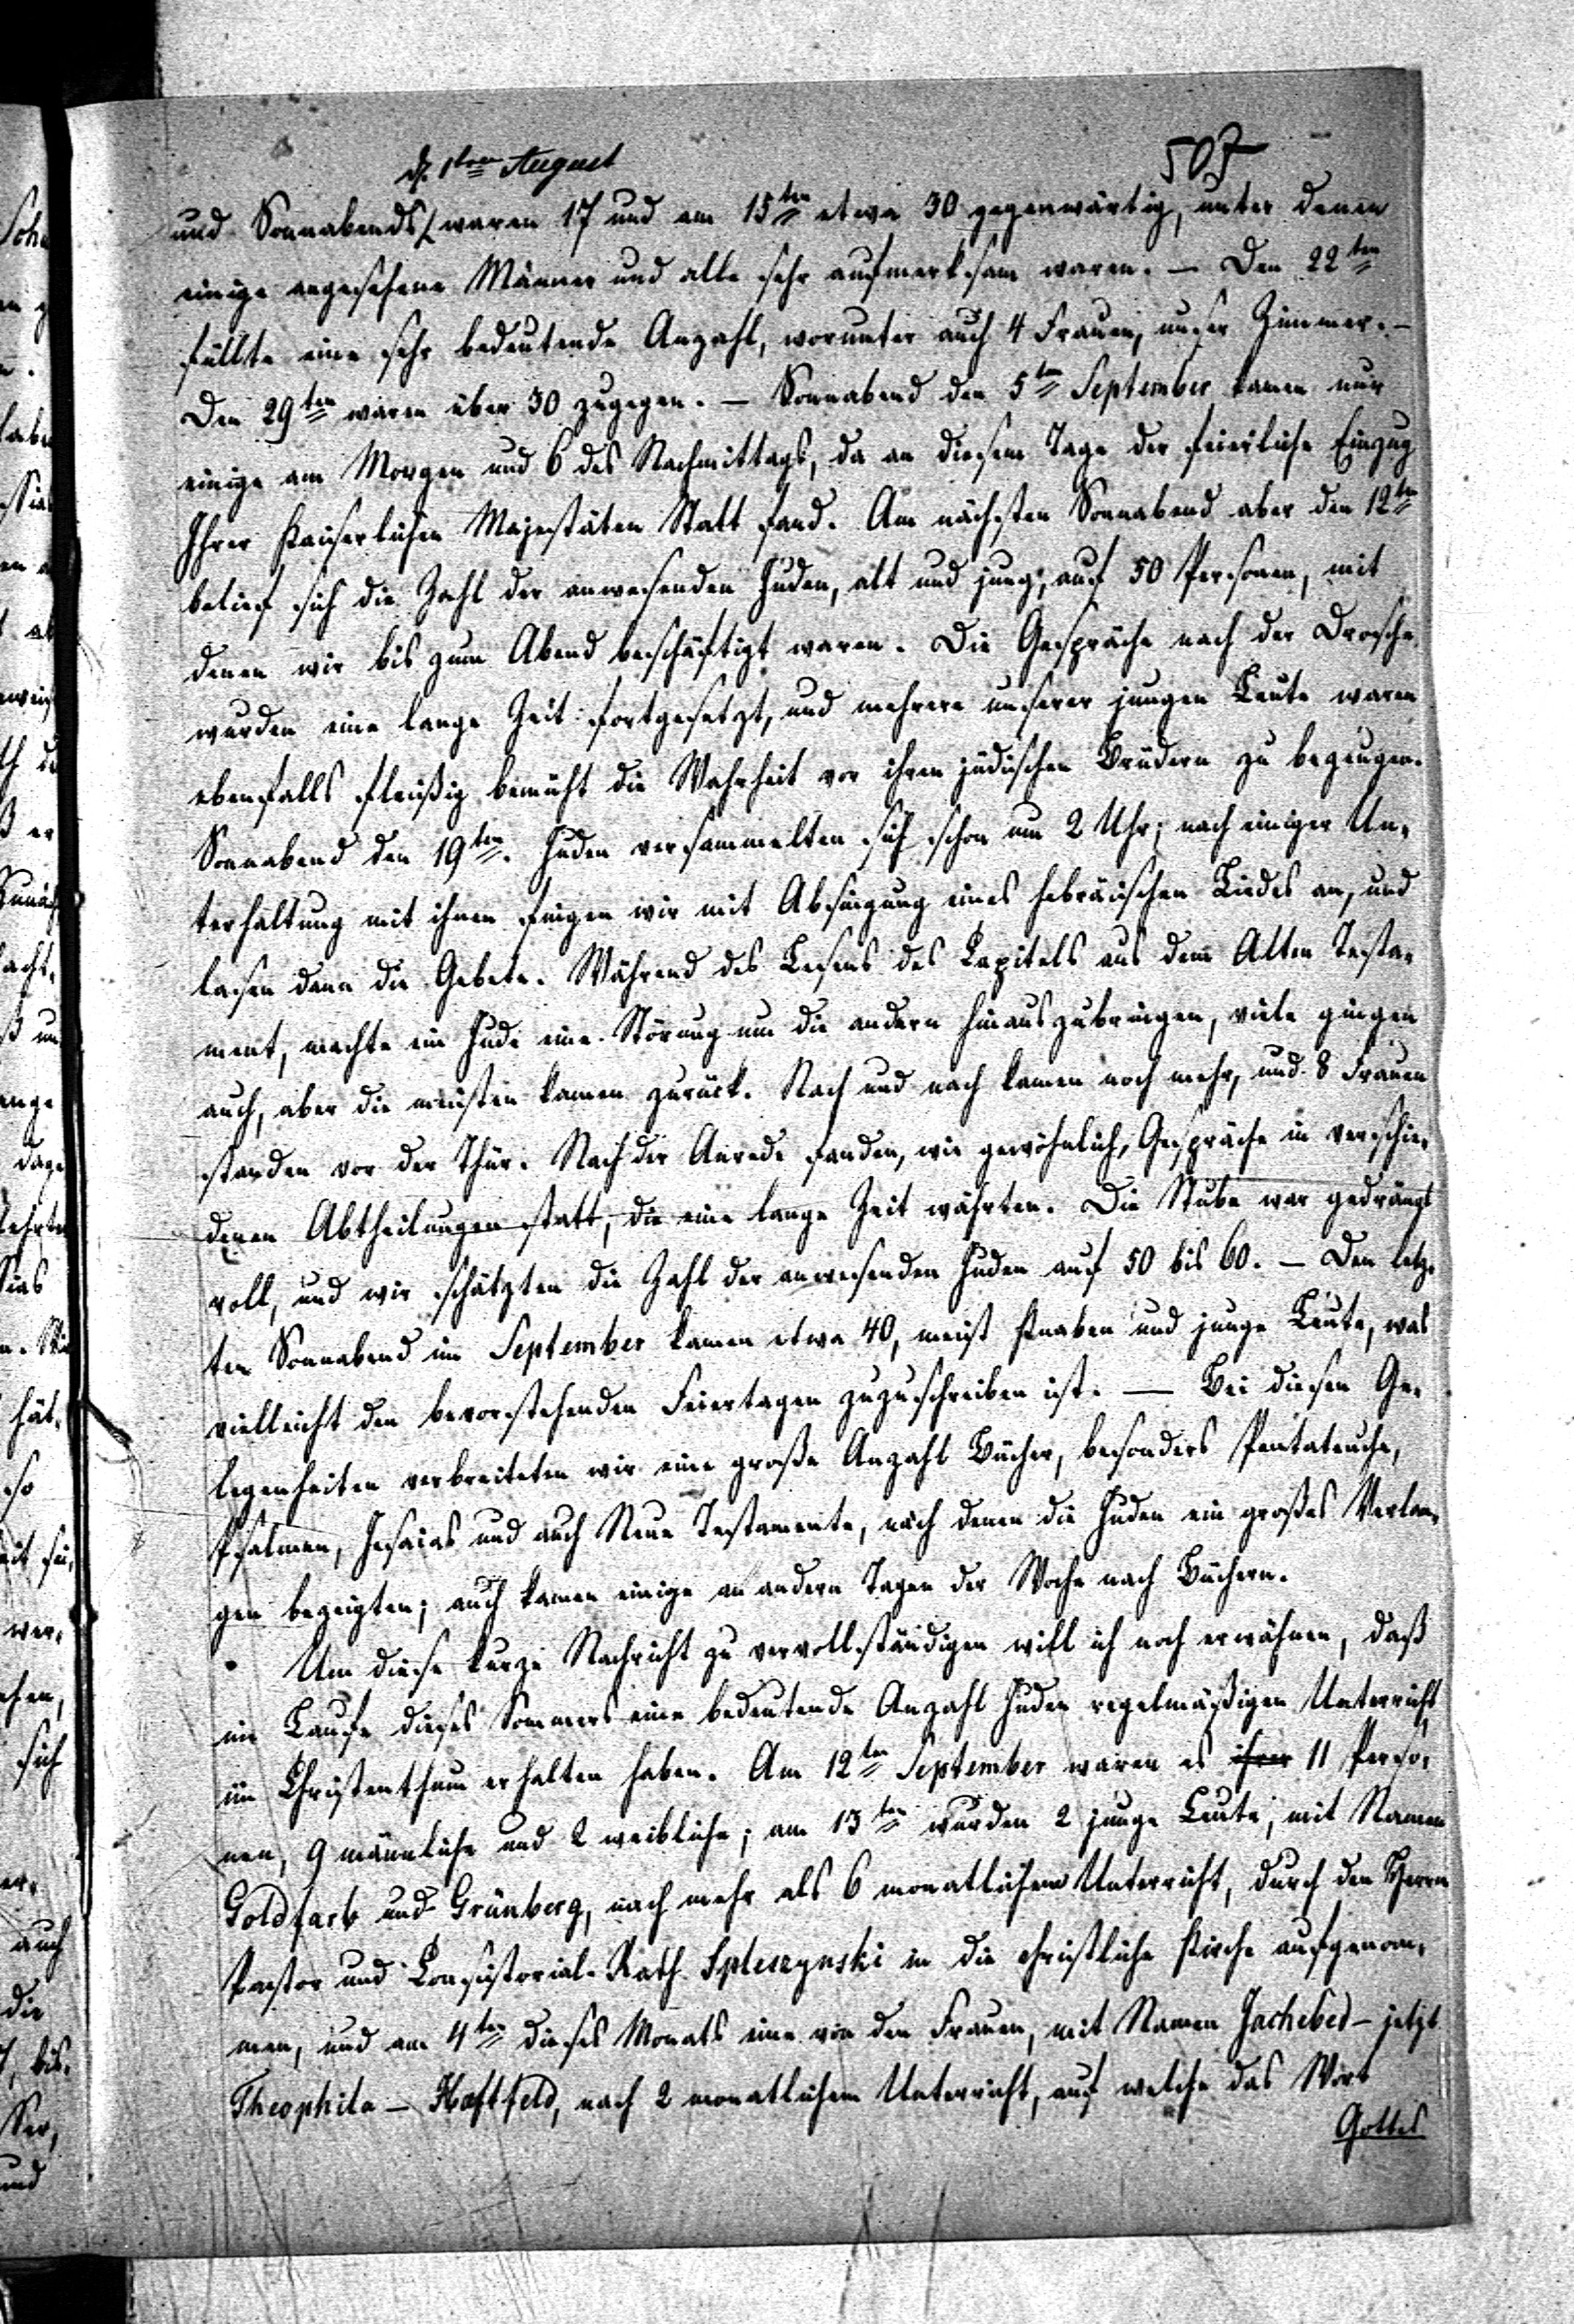 507
d. 1ten August
und Sonnabends waren 17 und am 15ten etwa 30 gegenwärtig, unter denen
einige angesehene Männer und alle sehr aufmerksam waren. – Den 22ten
füllte eine sehr bedeutende Anzahl, worunter auch 4 Frauen, unser Zimmer. –
Den 29ten waren über 30 zugegen. – Sonnabend den 5ten September kamen nur
einige am Morgen und 6 des Nachmittags, da an diesem Tage der feierliche Einzug
Ihrer Kaiserlichen Majestäten Statt fand. Am nächsten Sonnabend aber den 12ten
belief sich die Zahl der anwesenden Juden, alt und jung, auf 50 Personen, mit
denen wir bis zum Abend beschäftigt waren. Die Gespräche nach der Drosche
wurden eine lange Zeit fortgesetzt, und mehrere unserer jungen Leute waren
ebenfalls fleißig bemüht die Wahrheit vor ihren jüdischen Brüdern zu bezeugen.
Sonnabend den 19ten. Juden versammelten sich schon um 2 Uhr; nach einiger Un-
terhaltung mit ihnen fingen wir mit Absingung eines hebräischen Liedes an, und
lasen dann die Gebete. Während des Lesens des Capitels aus dem Alten Testa-
ment, machte ein Jude eine Störung um die andern hinauszubringen, viele gingen
auch, aber die meisten kamen zurück. Nach und nach kamen noch mehr, und 8 Frauen
standen vor der Thür. Nach der Anrede fanden, wie gewöhnlich, Gespräche in verschie-
denen Abtheilungen statt, die eine lange Zeit währten. Die Stube war gedrängt
voll, und wir schätzten die Zahl der anwesenden Juden auf 50 bis 60. – Den letz-
ten Sonnabend im September kamen etwa 40, meist Knaben und junge Leute, was
vielleicht den bevorstehenden Feiertagen zuzuschreiben ist. – Bei diesen Ge-
legenheiten verbreiteten wir eine große Anzahl Bücher, besonders Pentateuche,
Psalmen, Jesaias und auch Neue Testamente, nach denen die Juden ein großes Verlan-
gen bezeigten; auch kamen einige an andern Tagen der Woche nach Büchern.
Um diese kurze Nachricht zu vervollständigen will ich noch erwähnen, daß
im Laufe dieses Sommers eine bedeutende Anzahl Juden regelmäßigen Unterricht
im Christenthum erhalten haben. Am 12ten September waren es ihrer 11 Perso-
nen, 9 männliche und 2 weibliche; am 13ten wurden 2 junge Leute, mit Namen
Goldfarb und Grünberg, nach mehr als 6 monatlichem Unterricht, durch den Herrn
Pastor und Consistorial-Rath Spleszynski in die christliche Kirche aufgenom-
men, und am 4ten dieses Monats eine von den Frauen, mit Namen Jachebed – jetzt
Theophila – Haftfeld, nach 2 monatlichem Unterricht, auf welche das Wort
Gottes